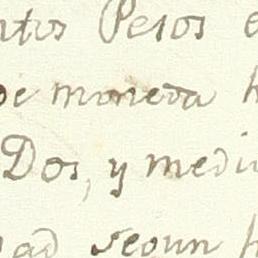 ntos Pesos e
de moneda h
Dos, y medi
ad segun h